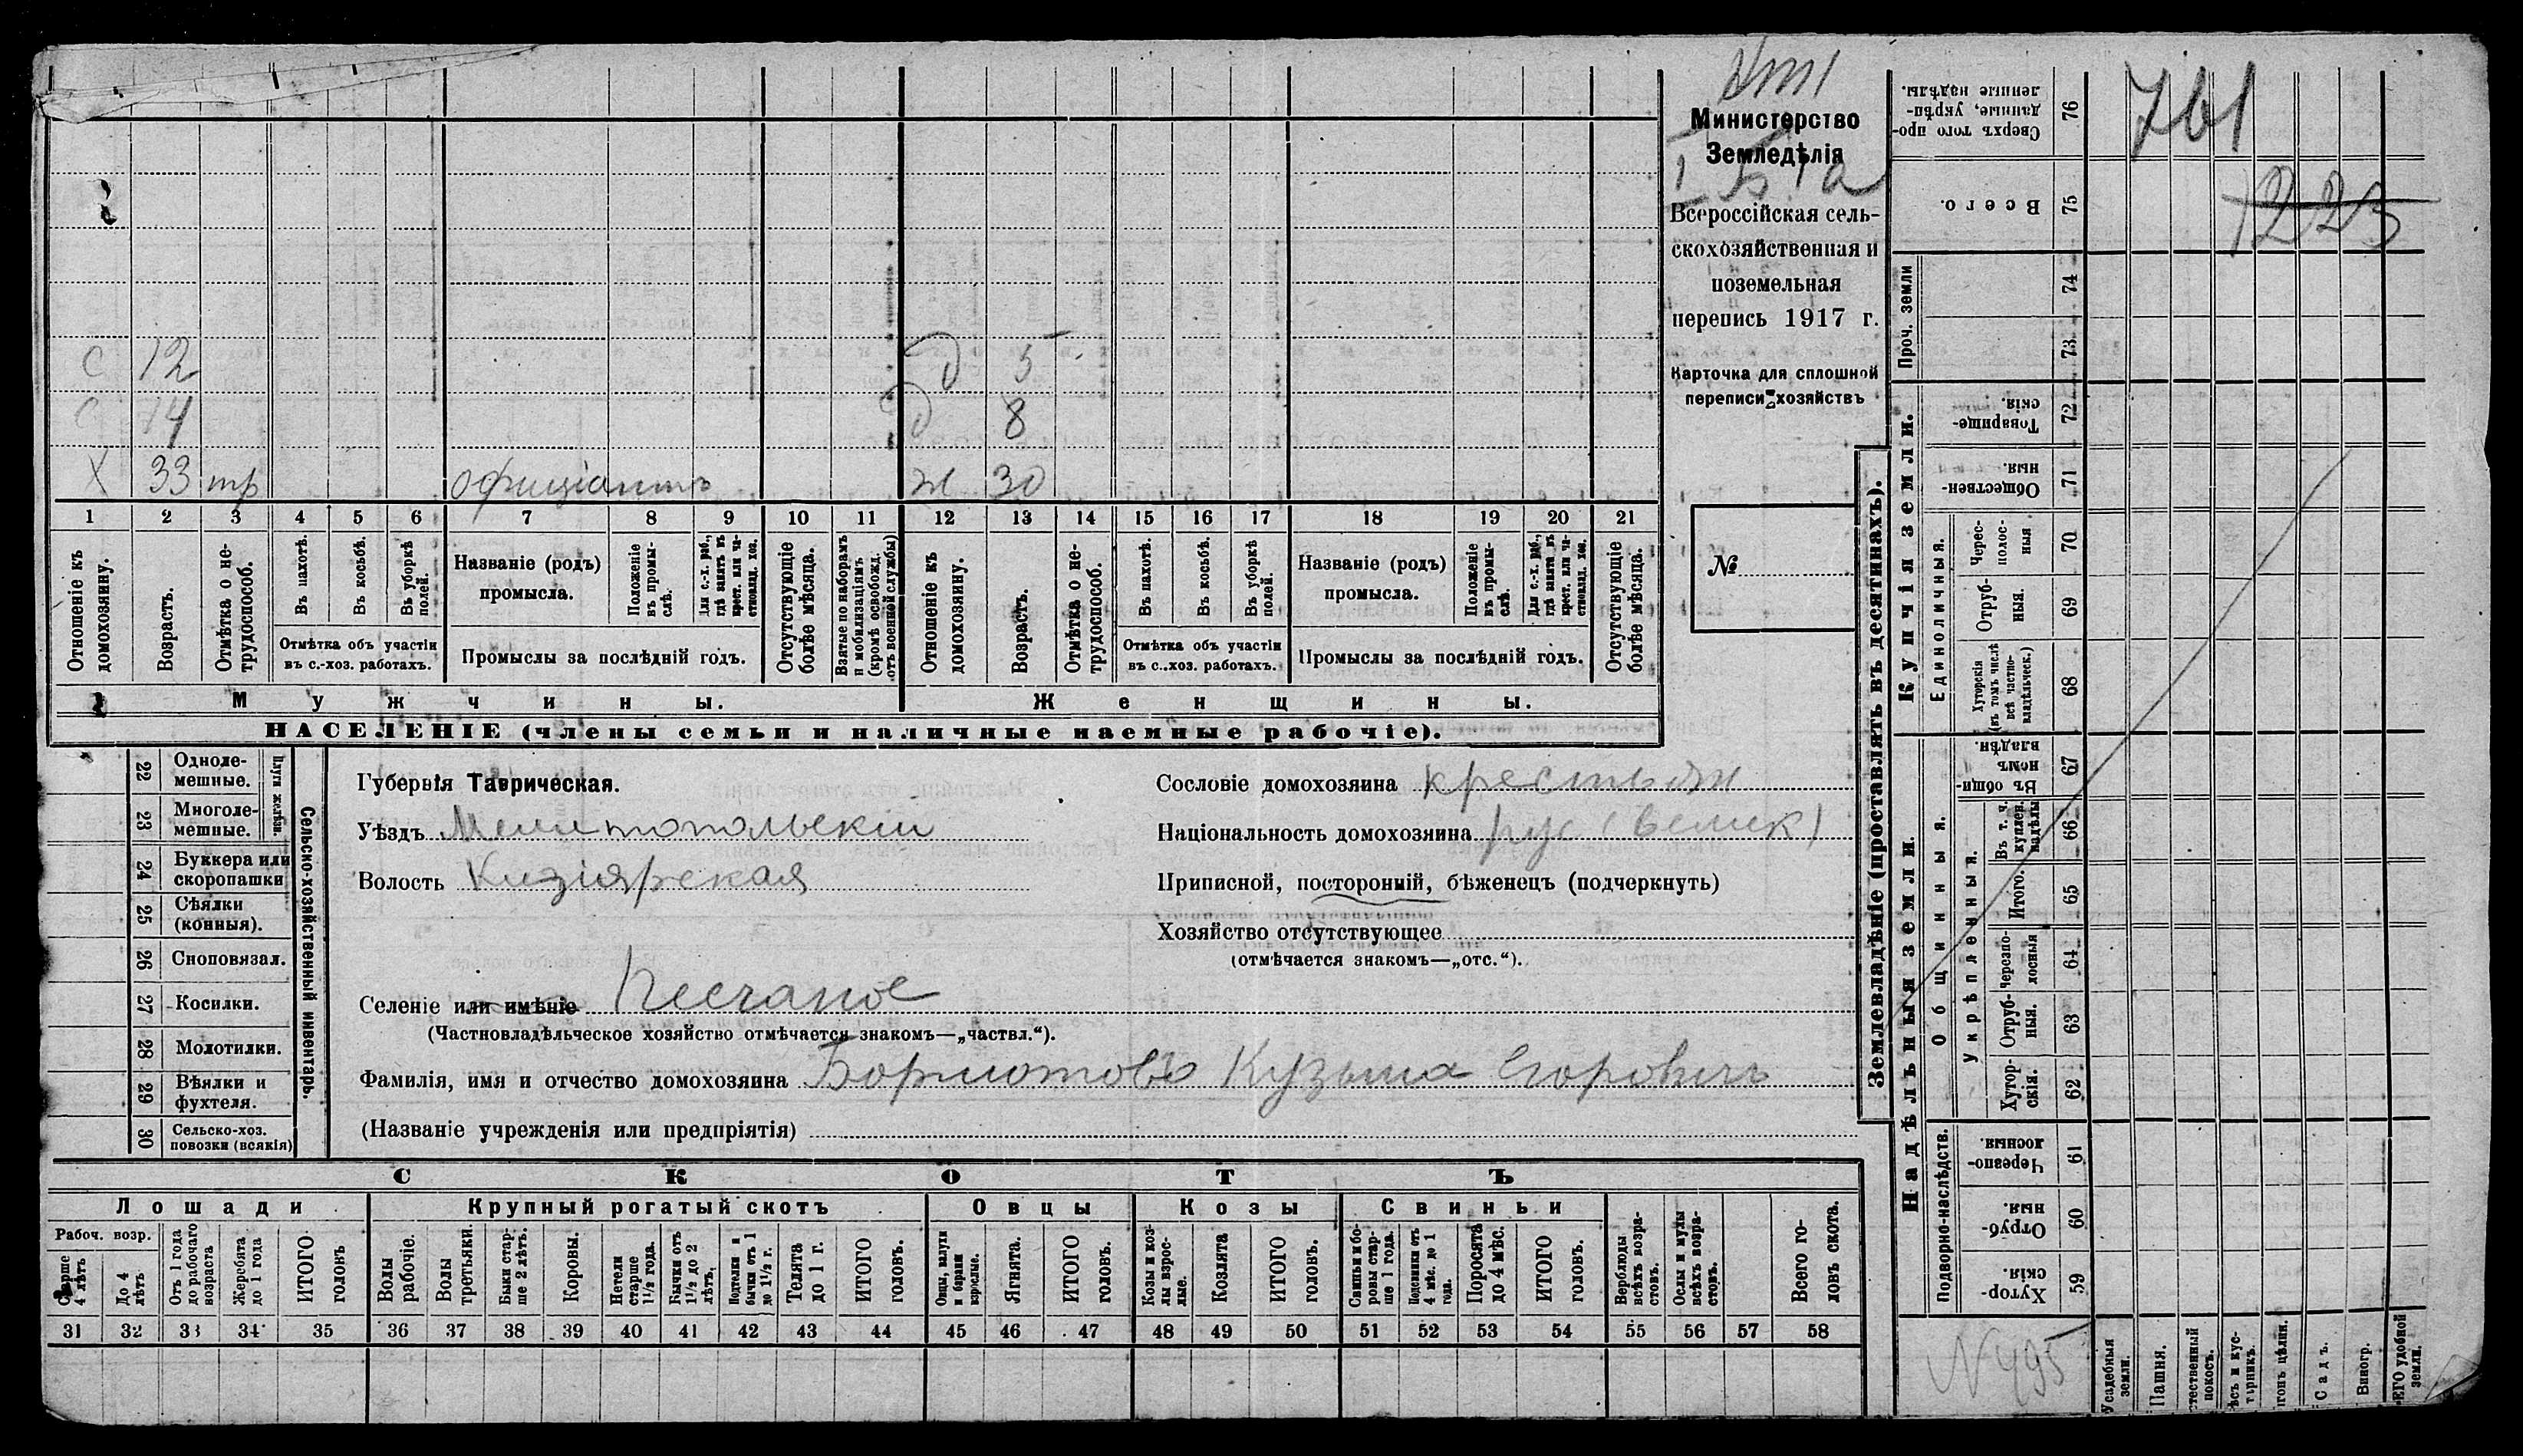 Министерство
Земледѣлія
Всероссійская сель-
скохозяйственная и
поземельная
перепись 1917 г.
Карточка для сплошной
переписи хозяйствъ
№
с 12 д 5
с 14 д 8
х 33 тр официантъ ж 30
1 2 3 4 5 6 7 8 9 10 11 12 13 14 15 16 17 18 19 20 21
Отношеніе къ домохозяину.
Возрастъ.
Отмѣтка о не-трудоспособ.
Въ пахотѣ.
Въ косьбѣ.
Въ уборкѣ полей.
Отмѣтка объ участіи
въ с.-хоз. работахъ.
Названіе (родъ)
промысла.
Положеніе въ промы-слѣ.
Для с.-х. раб., гдѣ занятъ въ крест. или ча-стновлад. хоз.
Промыслы за послѣдній годъ.
Отсутствующіе болѣе мѣсяца.
Взятые по наборамъ и мобилизаціямъ (кромѣ освобожд. отъ военной службы)
Отношеніе къ домохозяину.
Возрастъ.
Отмѣтка о не-трудоспособ.
Въ пахотѣ.
Въ косьбѣ.
Въ уборкѣ полей.
Отмѣтка объ участіи
въ с..хоз. работахъ.
Названіе (родъ)
промысла.
Положеніе въ промы-слѣ.
Для с.-х. раб., гдѣ занятъ въ крест. или ча-стновлад. хоз.
Промыслы за послѣдній годъ.
Отсутствующіе болѣе мѣсяца.
Мужчины.
Женщины.
НАСЕЛЕНІЕ (члены семьи и наличные наемные рабочіе).
Сельско-хозяйственный инвентарь.
Плуги желѣзн.
22 Одноле-мешные.
23 Многоле-мешные.
24 Буккера или скоропашки
25 Сѣялки (конныя).
26 Сноповязал.
27 Косилки.
28 Молотилки.
29 Вѣялки и фухтеля.
30 Сельско-хоз. повозки (всякія)
Губернія Таврическая.
Уѣздъ Мелитопольскій
Волость Кизіярская
Селеніе или имѣніе Песчаное
(Частновладѣльческое хозяйство отмѣчается знакомъ—„частвл.“).
Фамилія, имя и отчество домохозяина Бормотовъ Кузьма Егоровичъ
(Названіе учрежденія или предпріятія)
Сословіе домохозяина крестьян
Національность домохозяина рус (велик)
Приписной, посторонній, бѣженецъ (подчеркнуть)
Хозяйство отсутствующее
(отмѣчается знакомъ—„отс.“).
СКОТЪ
Лошади Крупный рогатый скотъ Овцы Козы Свиньи
Рабоч. возр.
Старше 4 лѣтъ
До 4 лѣтъ
Отъ 1 года до рабочаго возраста
Жеребята до 1 года
ИТОГО головъ
Волы рабочіе.
Волы третьяки.
Быки стар-ше 2 лѣтъ.
Коровы.
Нетели старше 1½ года.
Бычки отъ 1½ до 2 лѣтъ.
Подтелки и бычки отъ 1 до 1½ г.
Телята до 1 г.
ИТОГО головъ.
Овцы, валухи и бараны взрослые.
Ягнята.
ИТОГО головъ.
Козы и коз-лы взрос-лые.
Козлята
ИТОГО головъ.
Свиньи и бо-ровы стар-ше 1 года.
Подсвинки отъ 4 мѣс. до 1 года.
Поросята до 4 мѣс.
ИТОГО головъ.
Верблюды всѣхъ возра-стовъ.
Ослы и мулы всѣхъ возра-стовъ.
Всего го-ловъ скота.
31 32 33 34 35 36 37 38 39 40 41 42 43 44 45 46 47 48 49 50 51 52 53 54 55 56 57 58
Землевладѣніе (проставлять въ десятинахъ).
761
1223
Сверхъ того про-данные, укрѣп-ленные надѣлы. 76
Всего. 75
Проч. земли
74
73
Купчія земли.
Товарище-скія. 72
Обществен-ныя. 71
Единоличныя.
Черес-полос-ныя 70
Отруб-ныя. 69
Хуторскія (въ томъ числѣ всѣ частно-владѣльческ.) 68
Надѣльныя земли.
Общинныя.
Въ общи номъ владѣн. 67
Укрѣпленныя.
Въ т. ч. куплен. надѣлы 66
Итого. 65
Черезпо-лосныя 64
Отруб-ныя. 63
Хутор-скія. 62
Подворно-наслѣдств.
Черезпо-лосныя. 61
Отруб-ныя. 60
Хутор-скія. 59
N 495
Усадебныя земли.
Пашня.
стественный покосъ.
ѣсъ и кус-тарникъ.
гонъ цѣлин.
Садъ.
Виногр.
ЕГО удобной земли.